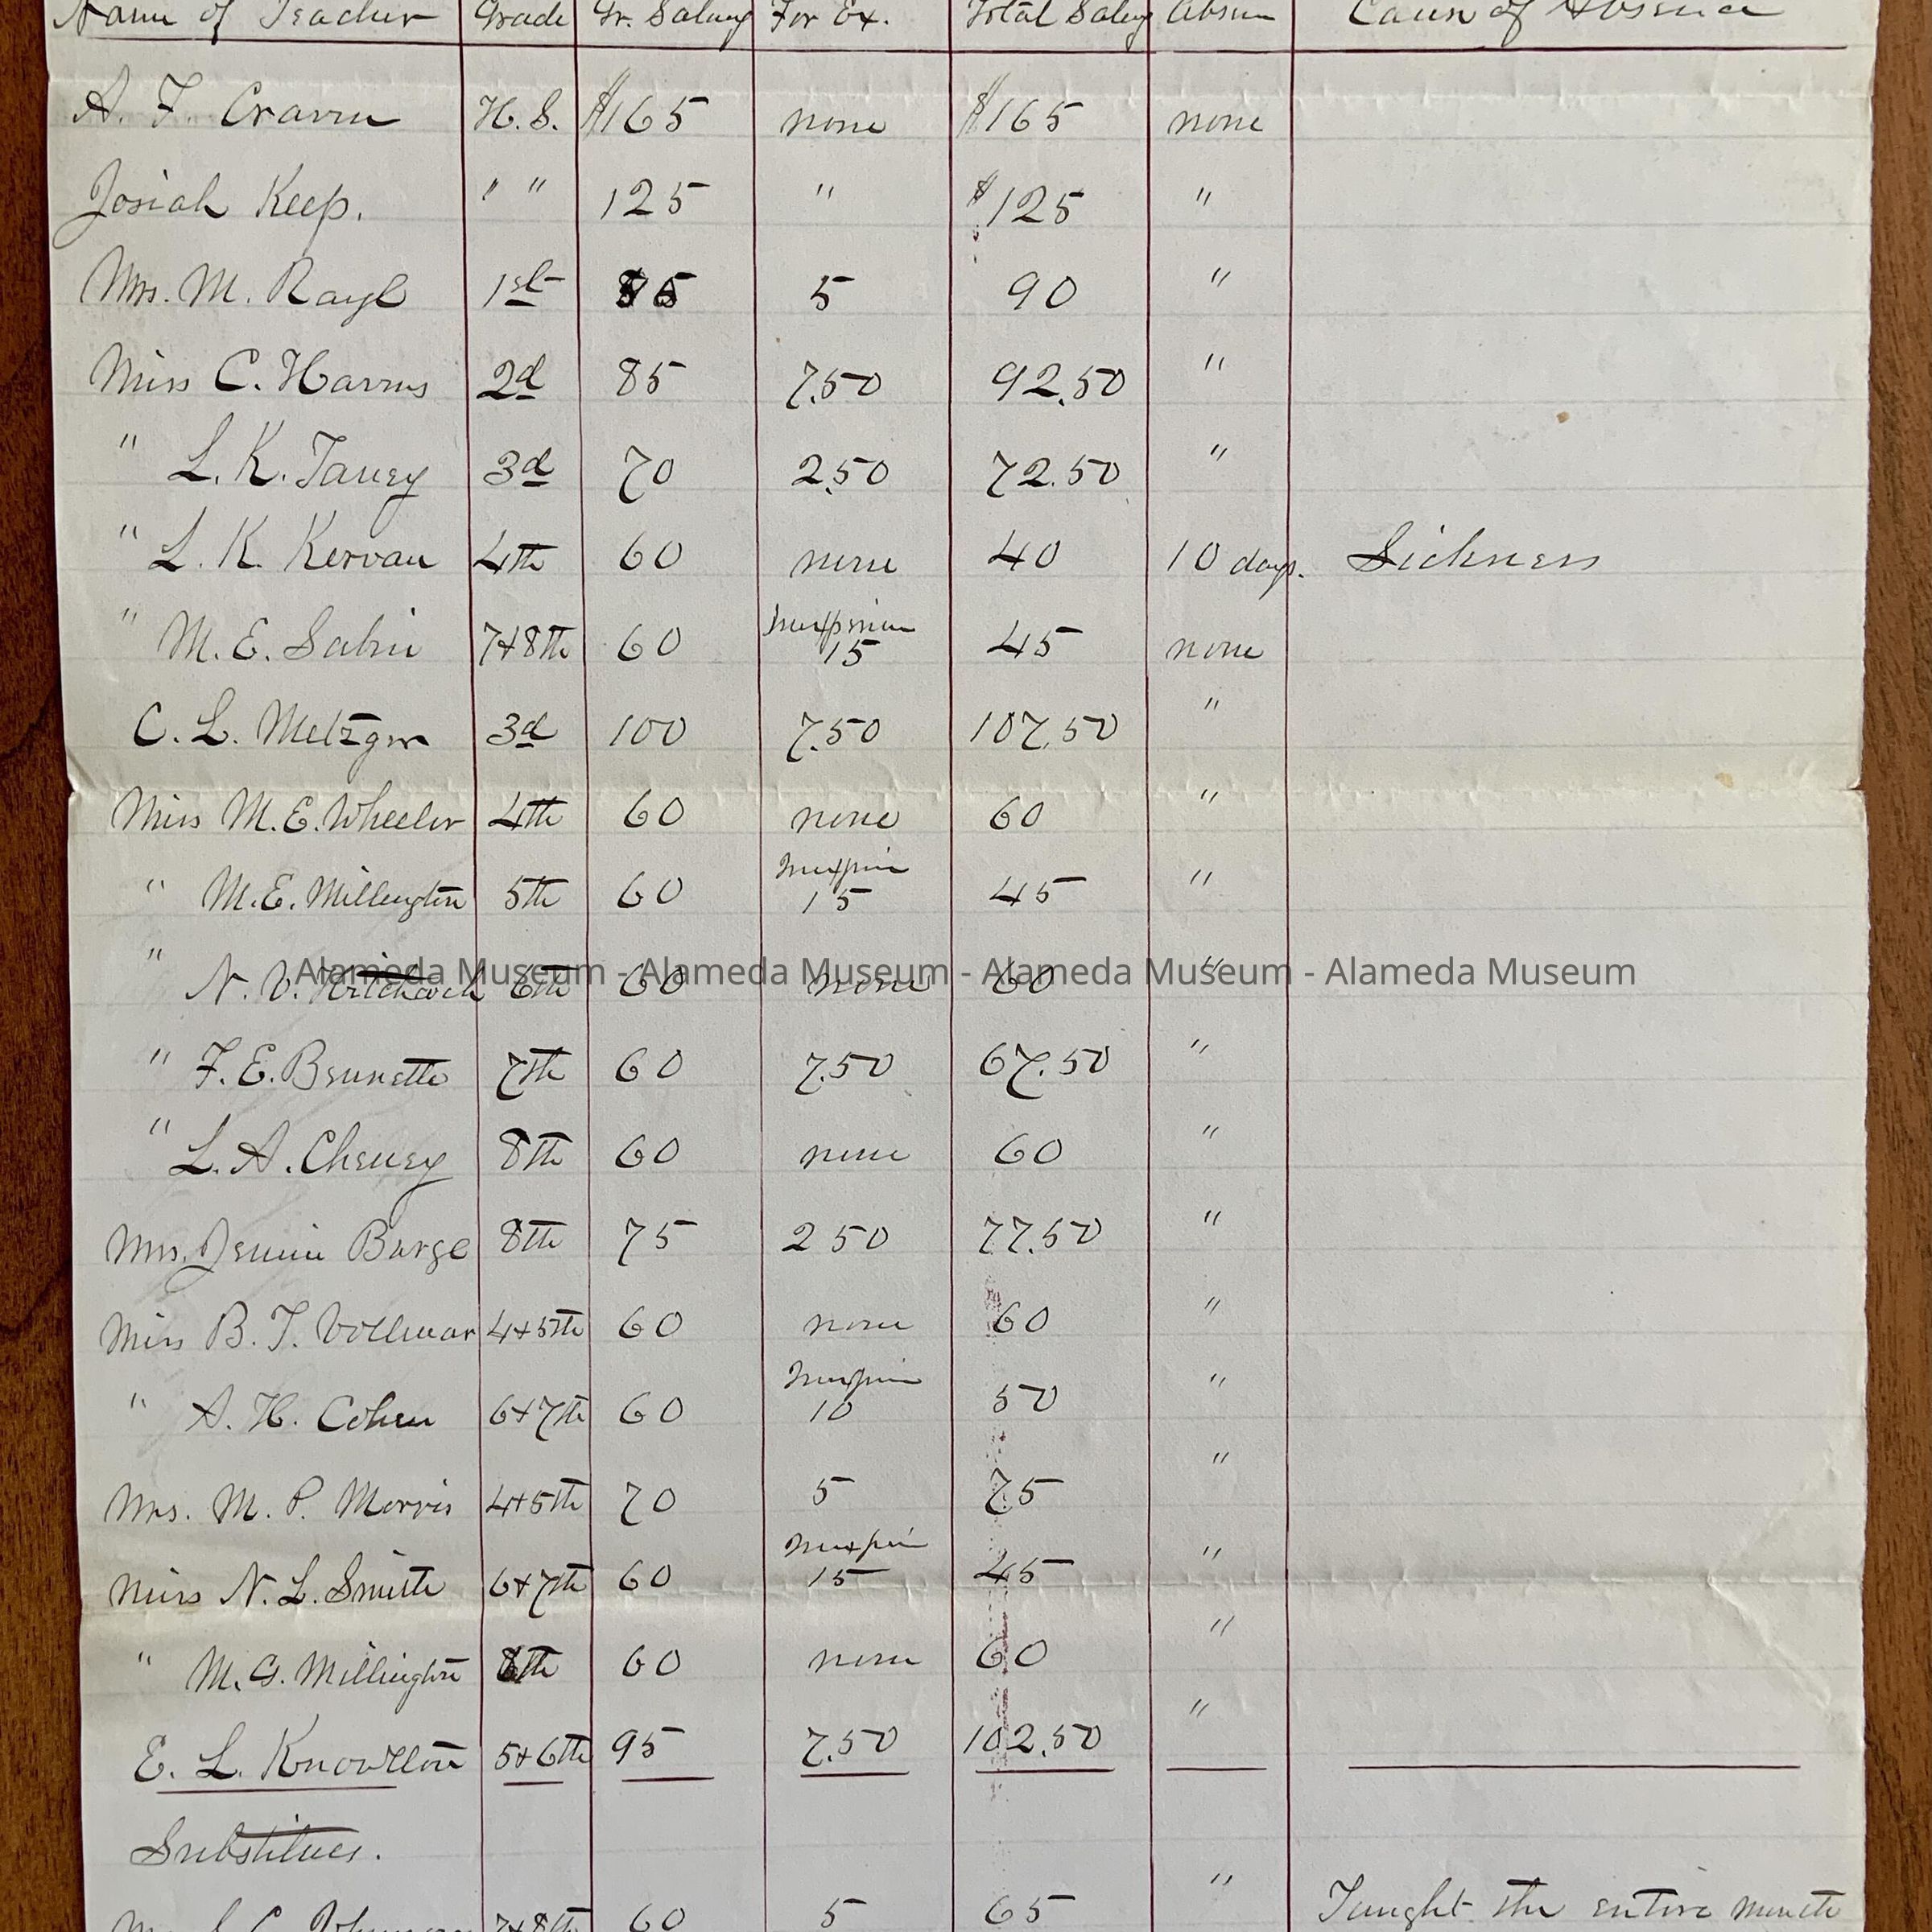 Name of Teacher Grade Gr. Salary For Ex. Total Salary Absence Cause of Absence
A. F. Craven H. S. $165 none $165 none
Josiah Keep. " " 125 " $125 "
Mrs. M. Rayl 1st 85 5 90 "
Miss C. Harms 2d 85 7.50 92.50 "
" L. K. Taney 3d 70 2.50 72.50 "
" L. K. Kervan 4th 60 none 40 10 days. Sickness
" M. E. Sabin 7+8th 60 15 45 none
C. L. Metzger 3d 100 7.50 107.50 "
Miss M. E. Wheeler 4th 60 none 60 "
" M. E. Millington 5th 60 15 45 "
" N. V. Hitchcock 6th 60 none 60 "
Alameda Museum - Alameda Museum - Alameda Museum - Alameda Museum
" F. E. Brunette 7th 60 7.50 67.50 "
" L. A. Cheney 8th 60 none 60 "
Mrs. Jennie Barge 8th 75 2 50 77.50 "
Miss B. T. Vollmar 4+5th 60 none 60 "
" A. H. Cohen 6+7th 60 10 50 "
Mrs. M. P. Morris 4+5th 70 5 75 "
Miss N. L. Smith 6+7th 60 15 45 "
" M. G. Millington 8th 60 none 60 "
E. L. Knowlton 5+6th 95 7.50 102.50 "
Substitues.
7+8th 60 5 65 " Taught the entire month